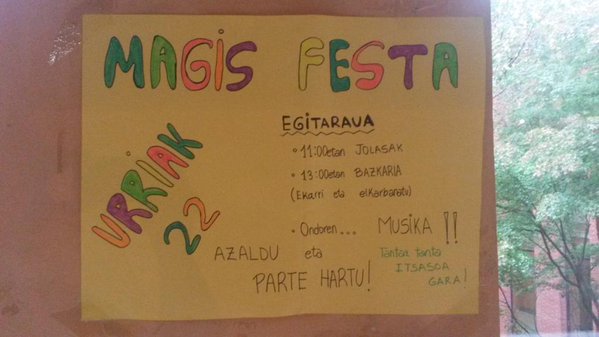 MAGIS FESTA
URRIAK 22
EGITARAUA
• 11:00etan JOLASAK
• 13:00etan BAZKARIA
(Ekarri eta elkarbanatu)
• Ondoren... MUSIKA !!
AZALDU eta
PARTE HARTU!
Tantaz tanta
ITSASOA
GARA!